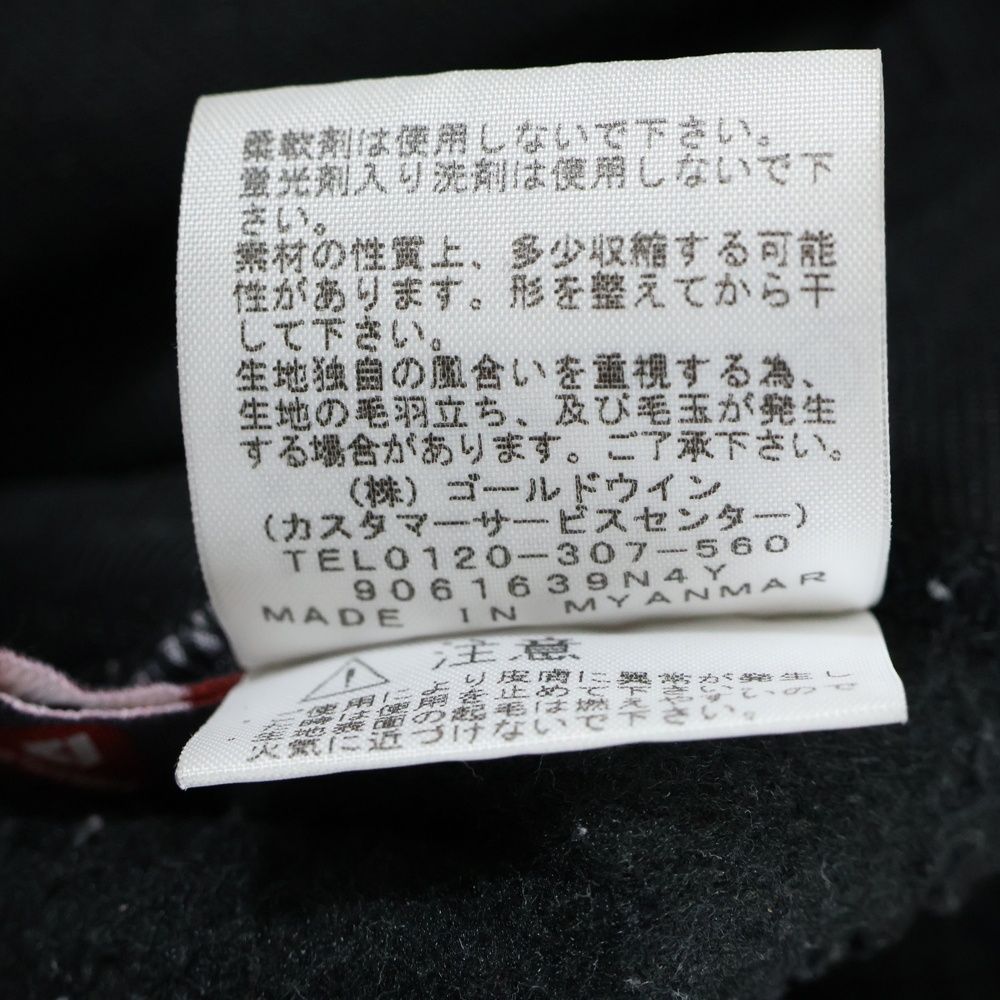 柔軟剤は使用しないで下さい。
蛍光剤入り洗剤は使用しないで下
さい。
素材の性質上、多少収縮する可能
性があります。形を整えてから干
して下さい。
生地独自の風合いを重視する為、
生地の毛羽立ち、及び毛玉が発生
する場合があります。ご了承下さい。
(株) ゴールドウイン
(カスタマーサービスセンター)
TEL0120-307-560
9061639N4Y
MADE IN MYANMAR
注意
使用により皮膚に異常が発生し
生地表面の起毛は燃えやすいので
火気に近づけないで下さい。